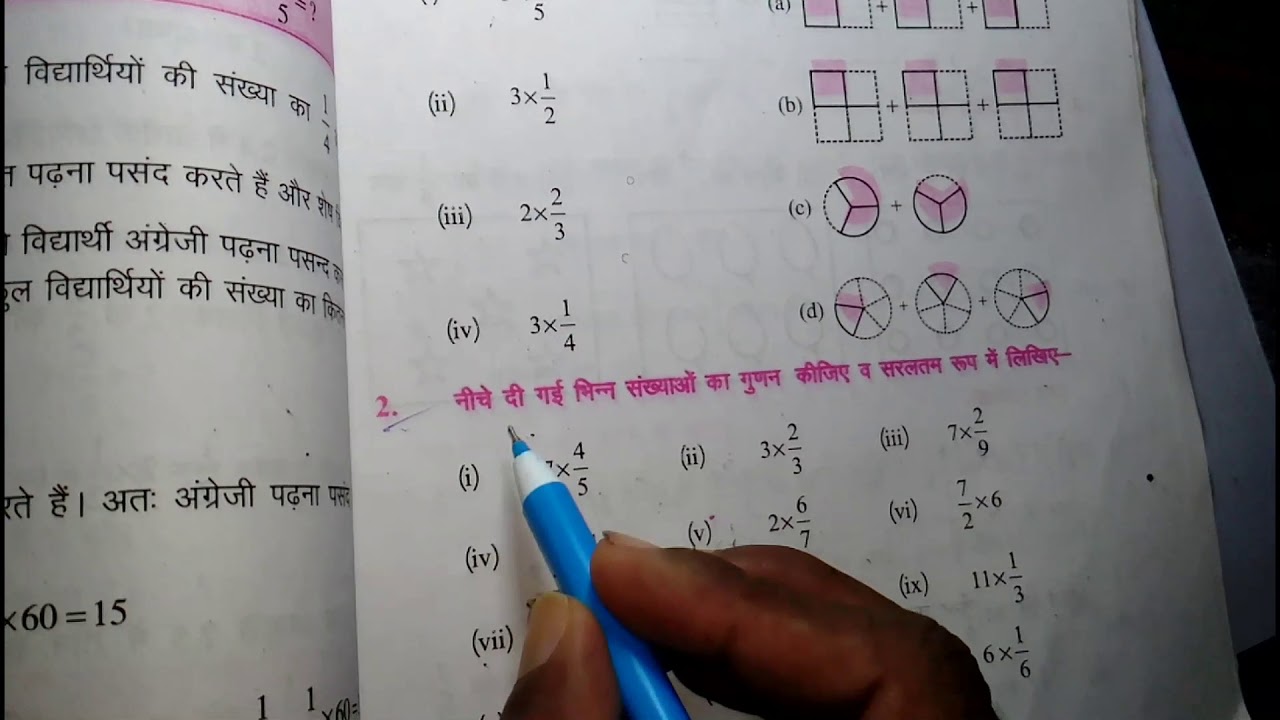 5 = ?
विद्यार्थियों की संख्या का 1/4
पढ़ना पसंद करते हैं और शेष
विद्यार्थी अंग्रेजी पढ़ना पसन्द
विद्यार्थियों की संख्या का
रते हैं। अतः अंग्रेजी पढ़ना
×60=15
1 1 ×60=
5 (a) + +
(ii) 3×1/2 (b) + +
(iii) 2×2/3 (c) +
(iv) 3×1/4 (d) + +
2. नीचे दी गई भिन्न संख्याओं का गुणन कीजिए व सरलतम रूप में लिखिए–
(i) ×4/5 (ii) 3×2/3 (iii) 7×2/9
(iv) (v) 2×6/7 (vi) 7/2×6
(vii) (ix) 11×1/3
6×1/6